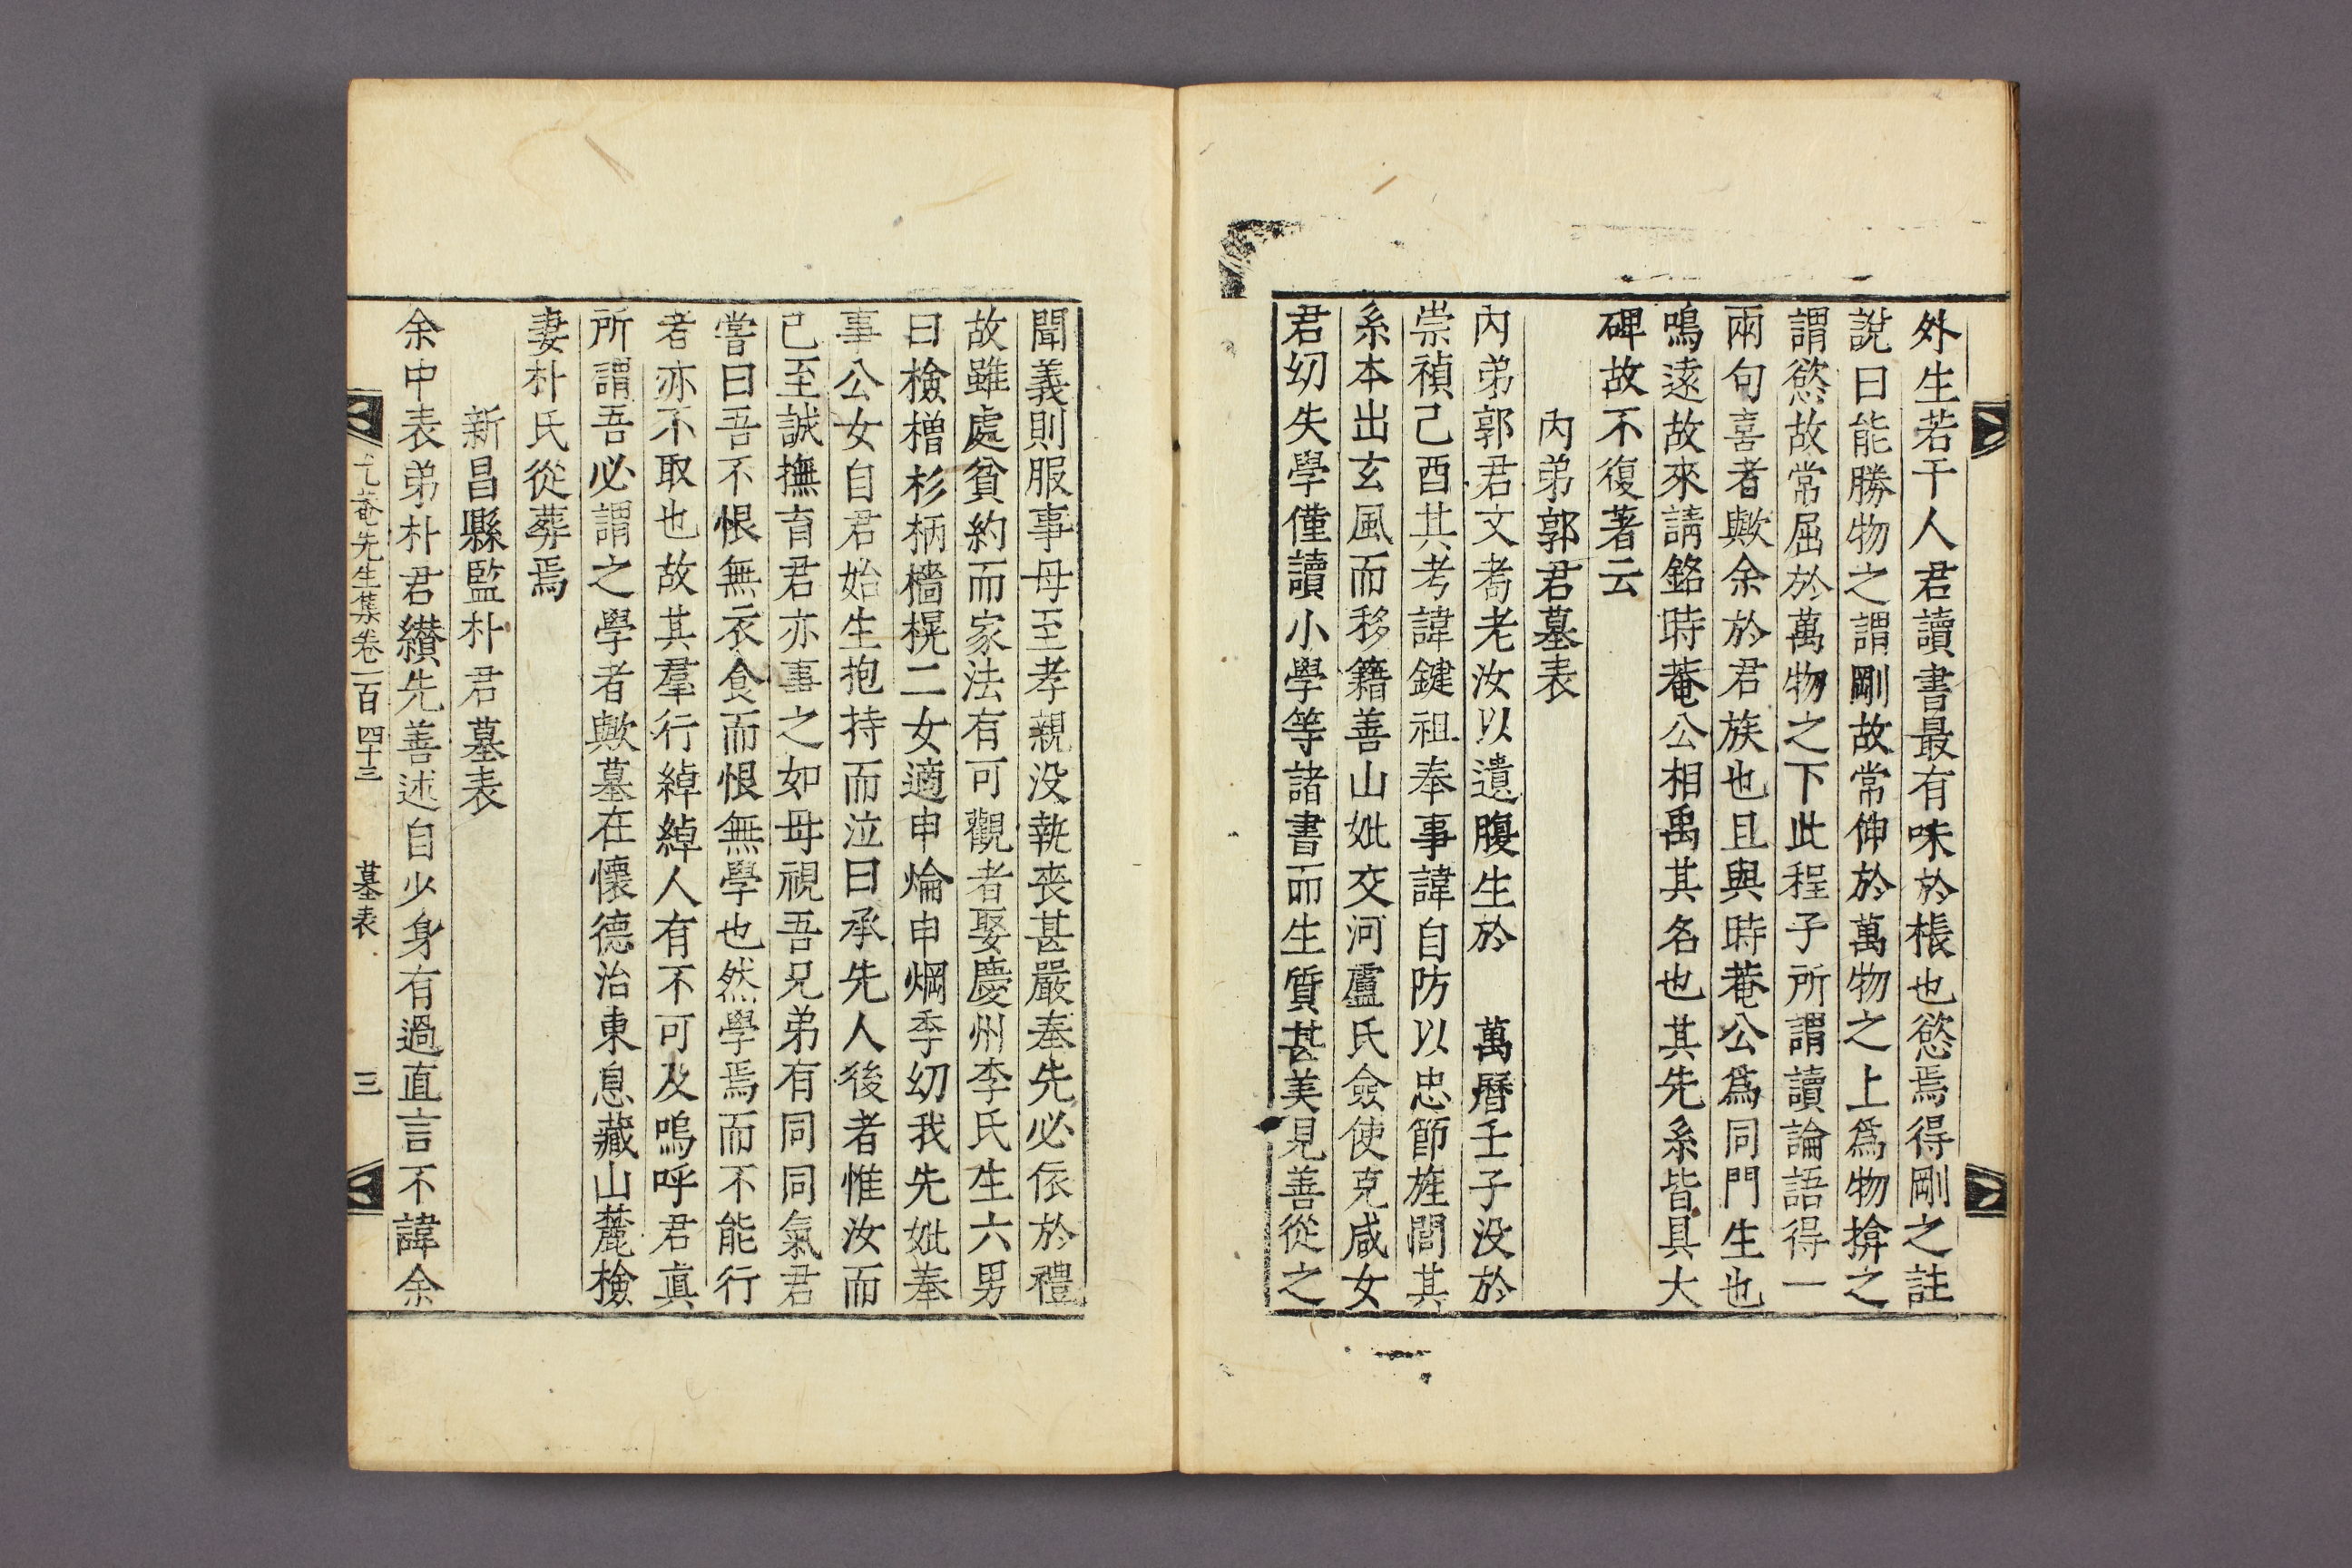 外生若干人君讀書最有味於棖也慾焉得剛之註
說曰能勝物之謂剛故常伸於萬物之上爲物揜之
謂慾故常屈於萬物之下此程子所謂讀論語得一
兩句喜者歟余於君族也且與時菴公爲同門生也
鳴遠故來請銘時菴公相禹其名也其先系皆具大
碑故不復著云
內弟郭君墓表
內弟郭君文耉老汝以遺腹生於 萬曆壬子没於
崇禎己酉其考諱鍵祖奉事諱自防以忠節旌閭其
系本出玄風而移籍善山妣交河盧氏僉使克咸女
君幼失學僅讀小學等諸書而生質甚美見善從之
聞義則服事母至孝親没執喪甚嚴奉先必依於禮
故雖處貧約而家法有可觀者娶慶州李氏生六男
曰檢橧杉柄檣榥二女適申烱申焵季幼我先妣奉
事公女自君始生抱持而泣曰承先人後者惟汝而
已至誠撫育君亦事之如母視吾兄弟有同同氣君
嘗曰吾不恨無衣食而恨無學也然學焉而不能行
者亦不取也故其羣行綽綽人有不可及嗚呼君眞
所謂吾必謂之學者歟墓在懷德治東息藏山麓檢
妻朴氏從葬焉
新昌縣監朴君墓表
余中表弟朴君纘先善述自少身有過直言不諱余
尤菴先生集卷一百四十三 墓表 三